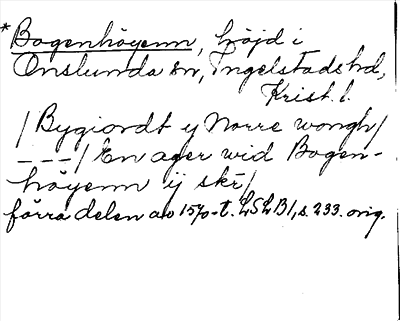 *Bogenhöyenn, höjd i
Onslunda sn, Ingelstads hd,
Krist. l.
/Bygiordt y Norre wongh/
---/En ager wid Bogen-
höyenn ij skr̄/
förra delen av 1570-t. LSLB1, s. 233. orig.